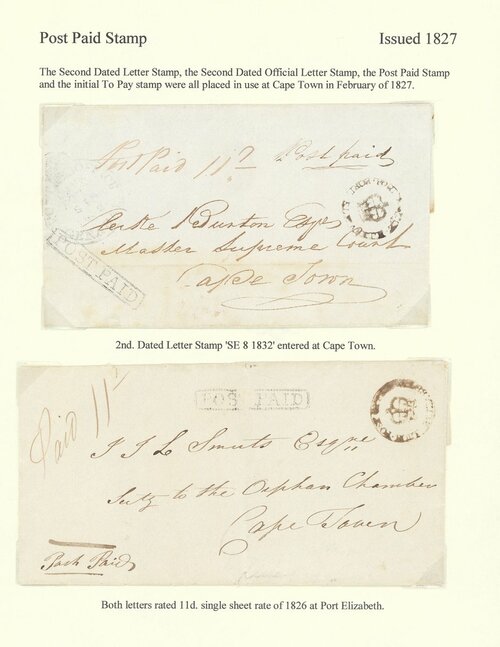 Post Paid Stamp Issued 1827
The Second Dated Letter Stamp, the Second Dated Official Letter Stamp, the Post Paid Stamp
and the initial To Pay stamp were all placed in use at Cape Town in February of 1827.
Post Paid 11d Post paid
Burton Esqr
Master Supreme Court
Cape Town
POST PAID
2nd. Dated Letter Stamp 'SE 8 1832' entered at Cape Town.
Paid 11d
POST PAID
J J L Smuts Esqre
to the Orphan Chamber
Cape Town
Post Paid
Both letters rated 11d. single sheet rate of 1826 at Port Elizabeth.